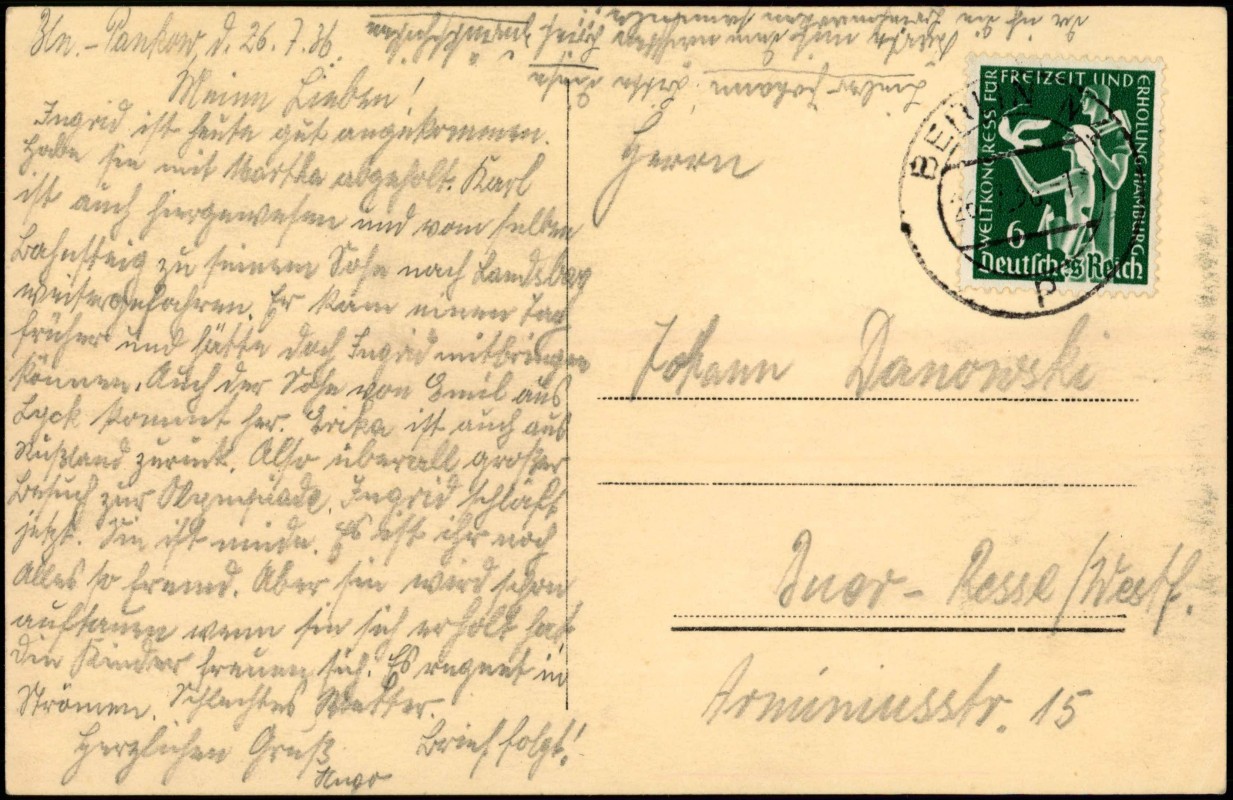 Bln.-Pankow, d. 26.7.36.
Meine Lieben!
Ingrid ist heute gut angekommen.
Habe sie mit Martha abgeholt. Karl
ist auch hiergewesen und vom selben
Bahnsteig zu seinem Sohn nach Landsberg
weitergefahren. Er kam einen Tag
früher und hätte doch Ingrid mitbringen
können. Auch der Sohn von Emil aus
Lyck kommt her. Erika ist auch aus
Rußland zurück. Also überall großer
Besuch zur Olympiade. Ingrid schläft
jetzt. Sie ist müde. Es ist ihr noch
Alles so fremd. Aber sie wird schon
auftauen wenn sie sich erholt hat
Die Kinder freuen sich. Es regnet in
Strömen. Schlechtes Wetter.
Herzlichen Gruß Brief folgt!
Lieber Johann! Bitte
Herrn
Johann Danowski
Buer-Resse/Westf.
Arminiusstr. 15
WELTKONGRESS FÜR FREIZEIT UND ERHOLUNG HAMBURG
6
Deutsches Reich
BERLIN N